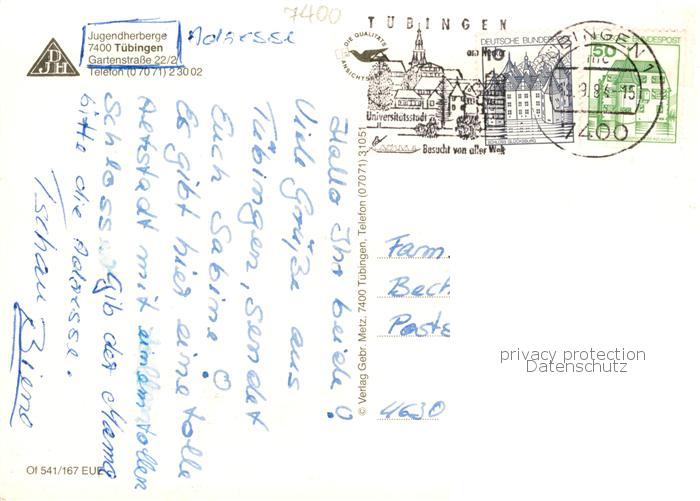 7400
Jugendherberge
7400 Tübingen
Gartenstraße 22/2
Telefon (0 70 71) 2 30 02
Adresse
DJH
TÜBINGEN
am Neckar
DIE QUALITÄTS
ANSICHTSK
Universitätsstadt
Besucht von aller Welt
DEUTSCHE BUNDESPOST
10
SCHLOSS GLÜCKSBURG
50
BUNDESPOST
TÜBINGEN 1
7400
Hallo Ihr beide!
Viele Grüße aus
Tübingen, sendet
Euch Sabine!
Es gibt hier eine tolle
Altstadt mit einem tollen
Schloss. Gib der Mama
bitte die Adresse.
Tschau
Biene
© Verlag Gebr. Metz, 7400 Tübingen, Telefon (07071) 31051
Fam.
Bech
Poste
4630
privacy protection
Datenschutz
Of 541/167 EUF